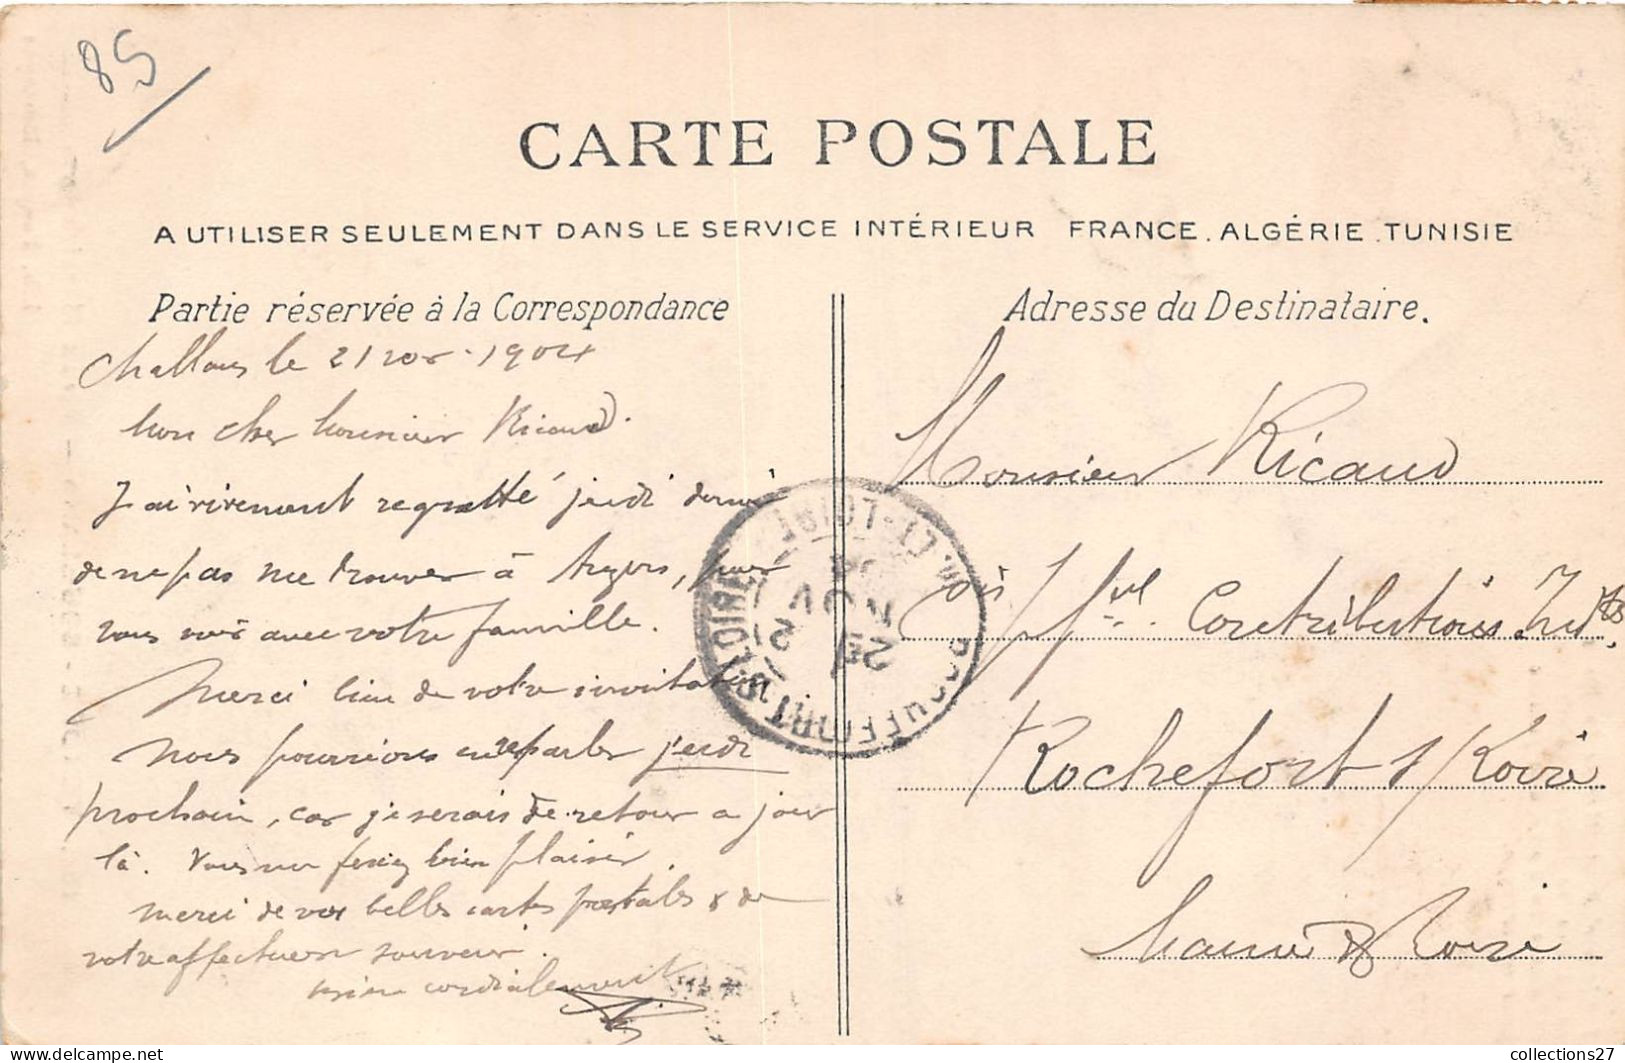 85
CARTE POSTALE
A UTILISER SEULEMENT DANS LE SERVICE INTÉRIEUR FRANCE. ALGÉRIE. TUNISIE
Partie réservée à la Correspondance
Challans le 21 nov. 1904
Mon cher Monsieur Ricaud.
J'ai vivement regretté jeudi dernier
de ne pas me trouver à Angers, pour
vous voir avec votre famille.
Merci bien de votre invitation
Nous pourrions en reparler jeudi
prochain, car je serais de retour ce jour
là. Vous me feriez bien plaisir.
Merci de vos belles cartes postales & de
votre affectueux souvenir.
bien cordialement
Adresse du Destinataire.
Monsieur Ricaud
Contributions Indtes
Rochefort s/Loire
Maine & Loire
ROCHEFORT-S-LOIRE
NOV
04
collections27